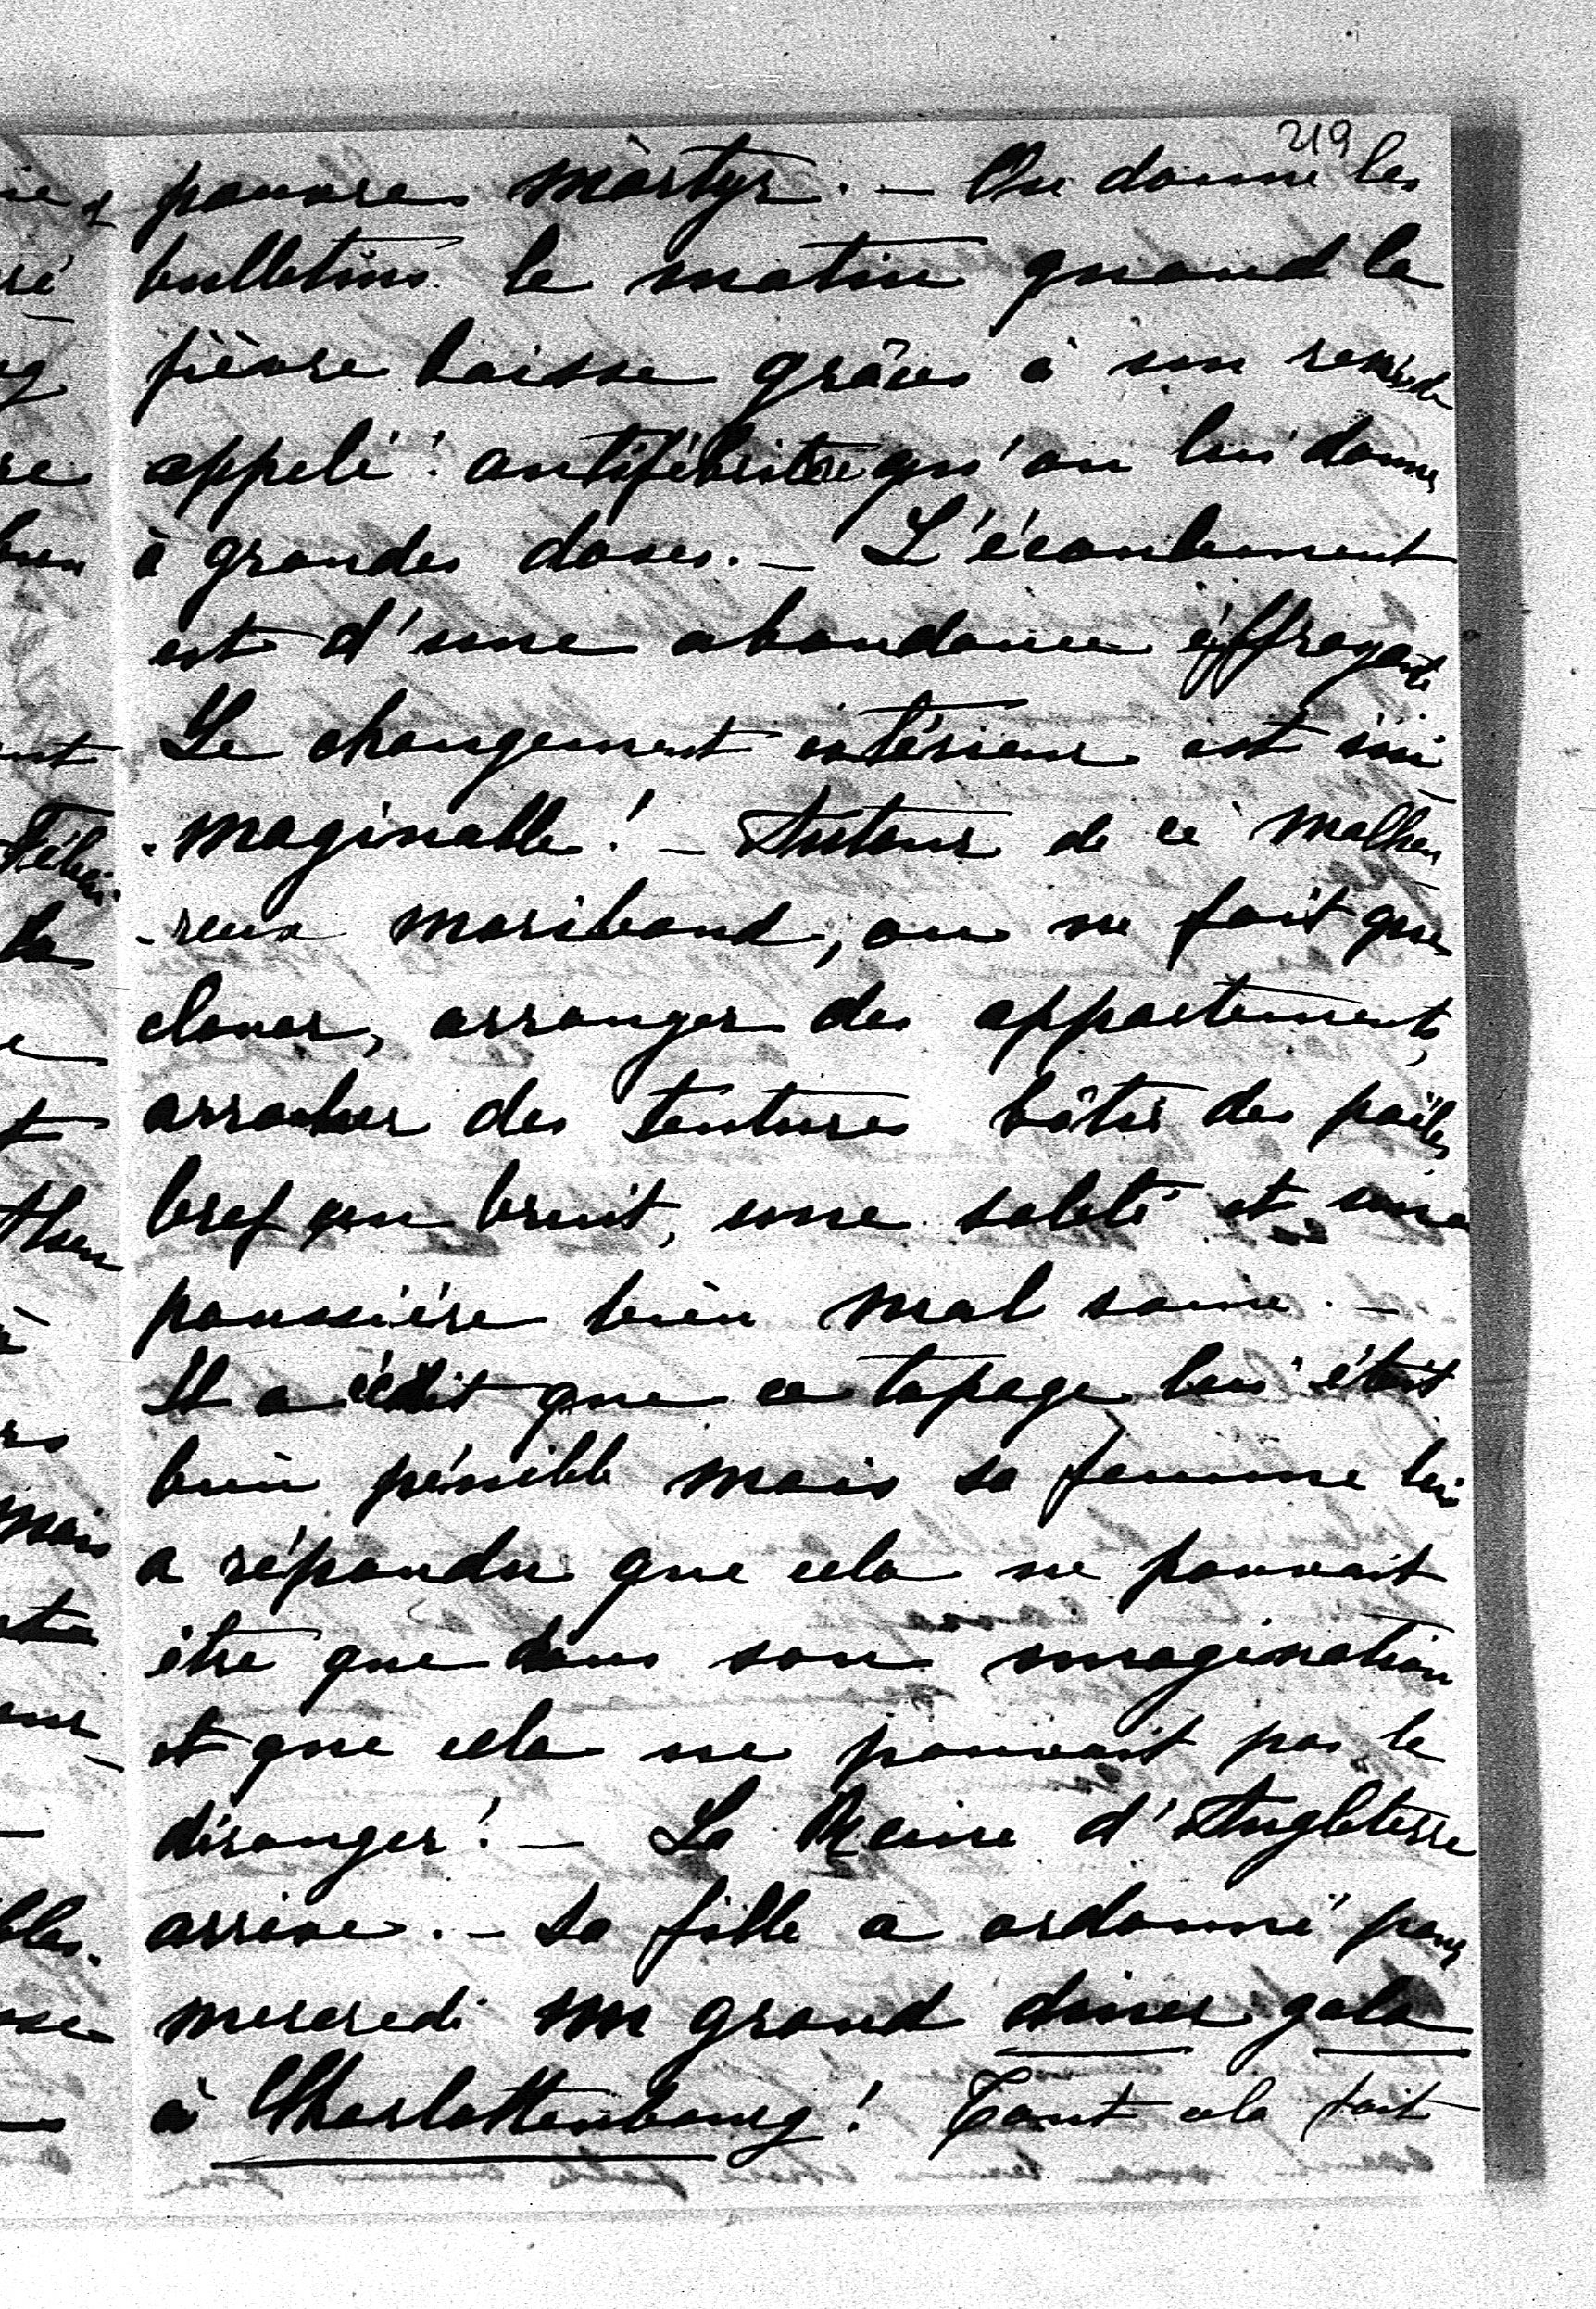 219
pauvre martyr. — On donne les
bulletins le matin quand la
fièvre baisse grâces à un remède
appelé: antifébrine qu'on lui donne
à grandes doses. — L'écoulement
est d'une abondance éffrayante
Le changement intérieur est ini
-maginable! — Autour de ce malheu
-reux moribond, on ne fait que
clouer, arranger des appartements,
arracher des tentures bâtir des poëles,
bref un bruit, une saleté et une
poussière bien mal saine. —
Il a écrit que ce tapage lui était
bien pénible mais sa femme lui
a répondu que cela ne pouvait
être que dans son imagination
et que cela ne pouvait pas le
déranger! — La Reine d'Angleterre
arrive. — Sa fille a ordonné pour
mercredi un grand diner gala
à Charlottenbourg! Tout cela fait